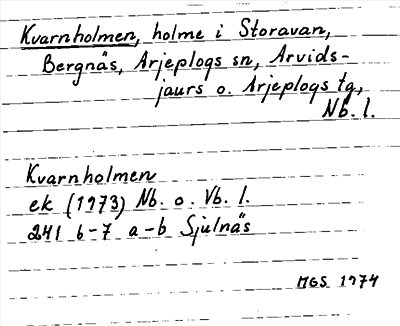 Kvarnholmen, holme i Storavan,
Bergnäs, Arjeplogs sn, Arvids-
jaurs o. Arjeplogs tg,
Nb. l.
Kvarnholmen
ek (1973) Nb. o. Vb. l.
241 6-7 a-b Sjulnäs
MGS 1974